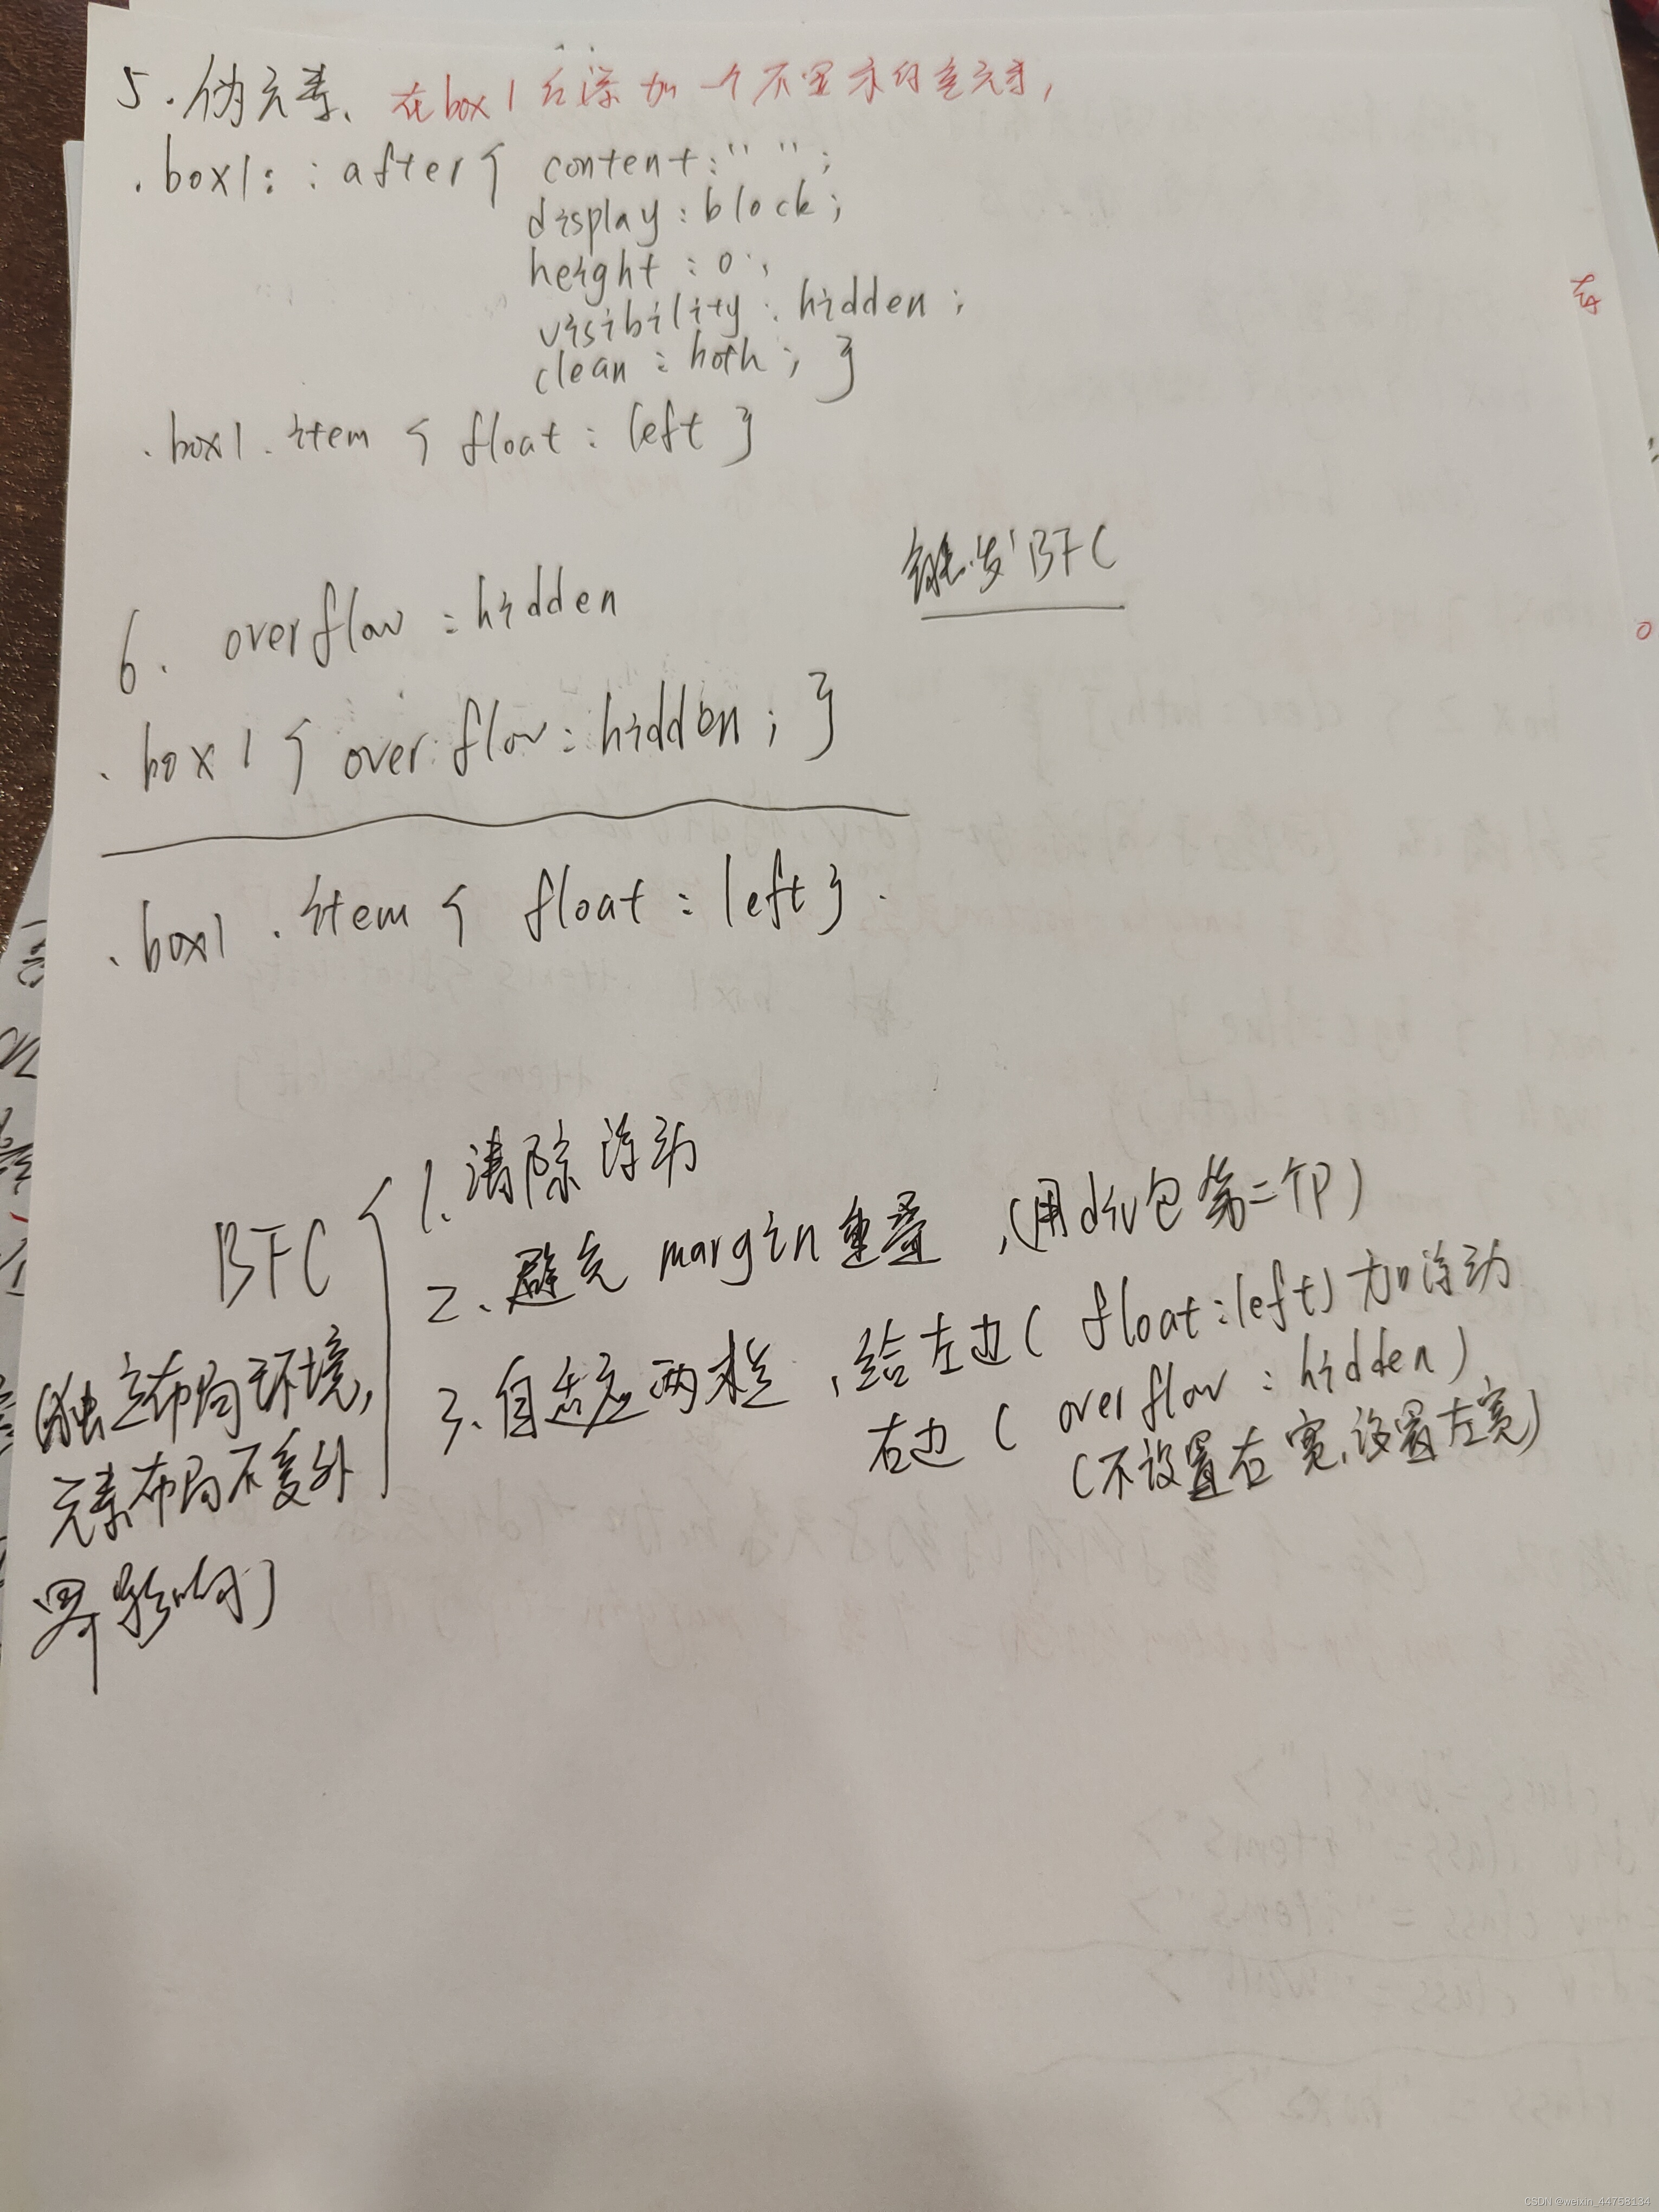 5. 伪元素、在box1后添加一个不显示的空元素,
.box1::after{ content:" ";
display:block;
height:0;
visibility:hidden;
clean:both; }
.box1 .item { float:left }
触发BFC
6. overflow:hidden
.box1 { overflow:hidden; }
.box1 .item { float:left}.
BFC
(独立布局环境,
元素布局不受外
界影响)
1. 清除浮动
2. 避免 margin重叠,(用div包第二个P)
3. 自适应两栏,给左边( float:left) 加浮动
右边( overflow:hidden)
(不设置右宽,设置左宽)
CSDN @weixin_44758134